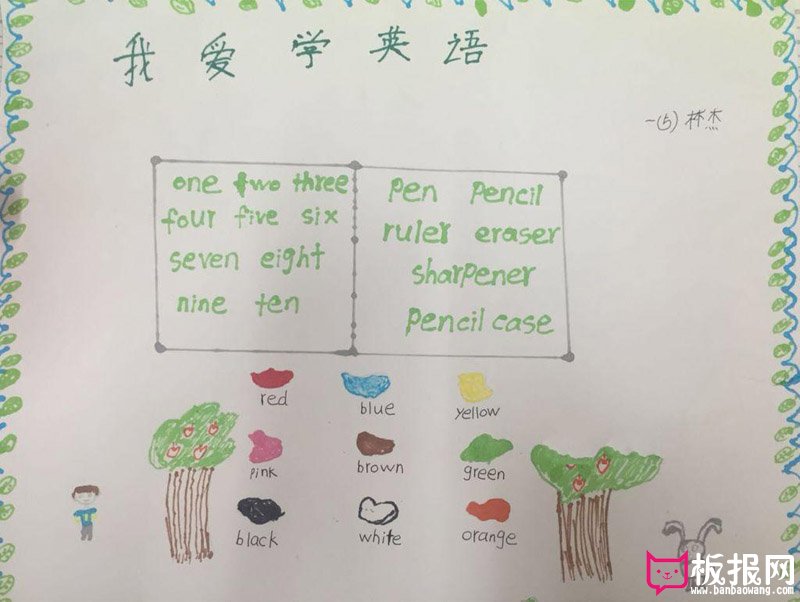 我爱学英语
一(5) 林杰
one two three
four five six
seven eight
nine ten
pen pencil
ruler eraser
sharpener
pencil case
red blue yellow
pink brown green
black white orange
板报网
www.banbaowang.com